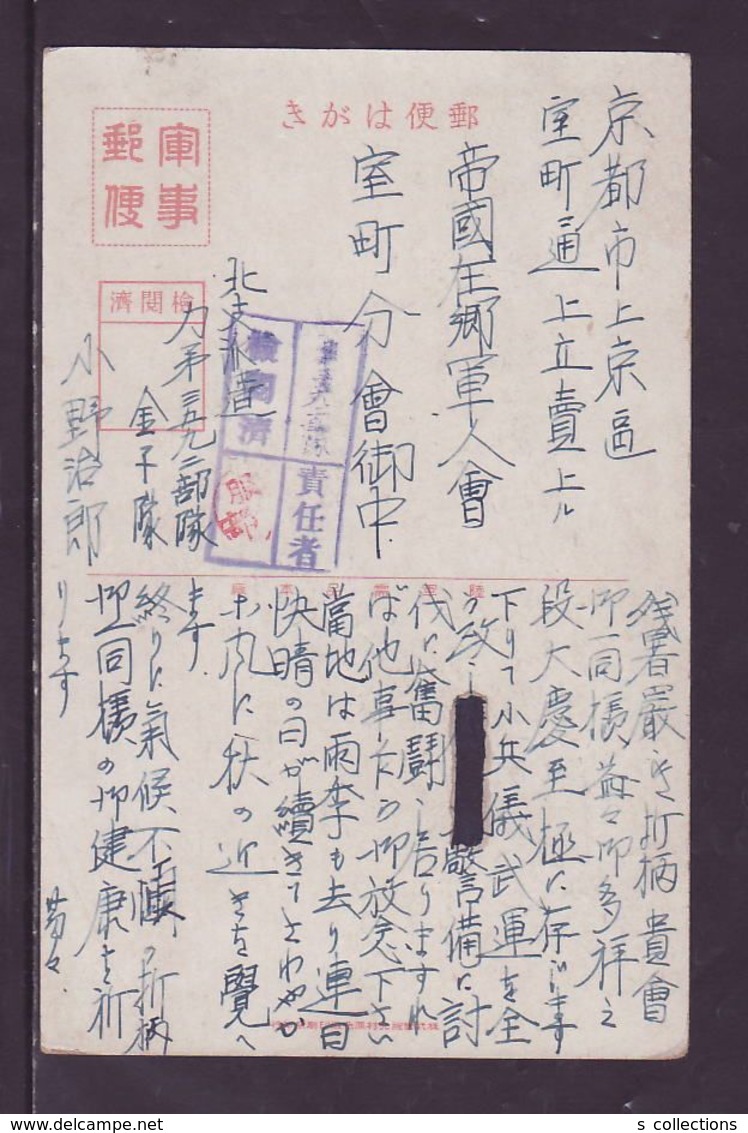 郵便はがき
軍事郵便
検閲済
京都市上京區
室町通上立賣上ル
帝國在郷軍人會
室町分會御中
北支派遣
カ第三五九二部隊
金子隊
小野治郎
検閲済
責任者
残暑嚴き折柄貴會
御一同樣益々御多祥之
段大慶至極に存じます
下りて小兵儀武運を全
警備に討
伐に奮闘 居りますれ
ば他事 御放念下さい
當地は雨季も去り連日
快晴の日が續きてさわやか
に秋の近きを覺へ
ます
終りに氣候不順の折柄
御一同樣の御健康を祈
ります
s collections